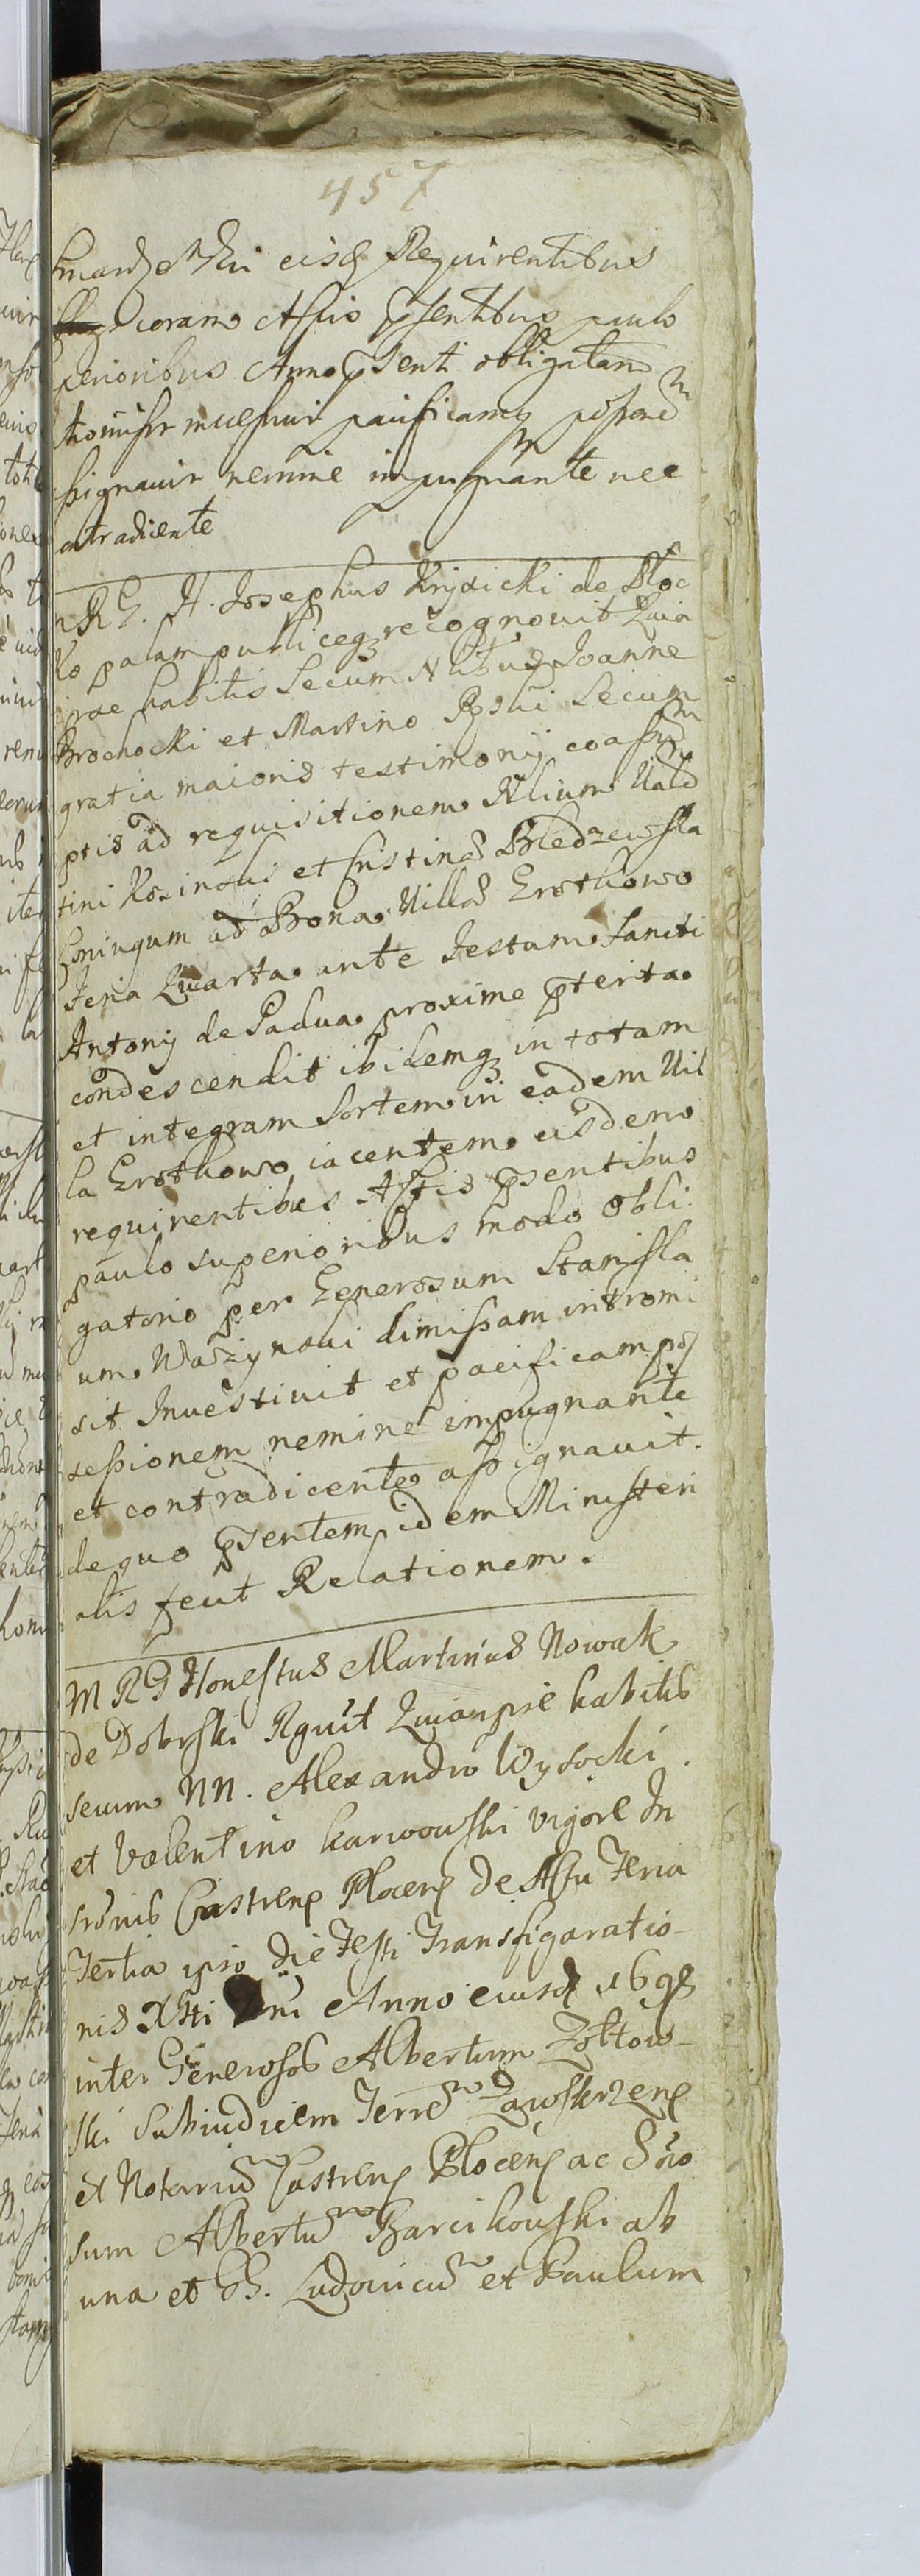 457
eisd Requirentibus
coram Actis pntibus paulo
perioribus Anno pnti obligatam
tromisit investivit pacificamq possnem
ssignavit nemine impugnante nec
ntradicente
RG. H. Josephus Krysicki de Ploc
ko palam publiceq recognovit Quia
ipse habitis Secum Nlibus Joanne
Brochocki et Martino Secum
gratia maioris testimonij coassum
ptis ad requisitionem Nlium Vald
tini Kosinski et Cristinæ Bledzewska
Coniugum ad Bona Villæ Erothowo
Feria Quarta ante Festum Sancti
Antonij de Padua proxime pterita
condescendit ibidemq in totam
et integram Sortem in eadem Vil
la Erothowo iacentem eisdem
requirentibus Actis psentibus
paulo superioribus modo Obli
gatorio per Generosum Stanisla
um Wazynski dimissam intromi
sit Investivit et pacificam pos
sessionem nemine impugnante
et contradicente assignavit.
de quo psentem idem Ministeri
alis fecit Relationem.
M RG Honestus Martinus Nowak
de Dobrski Rgvit Quia ipse habitis
secum NN. Alexandro Wysocki
et Valentino Karwowski vigore In
Castrens Plocens de Actu Feria
Tertia ipso Die Festi Transfiguratio-
nis Xsti Dni Anno eiusd 1698
inter Generosos Albertum Zoltow-
ski Subiudicem Terræ Zawskrzens
et Notariu Castrens Plocens ac Gnro
sum Albertu Barcikowski ab
una et GG. Ludovicu et Paulum